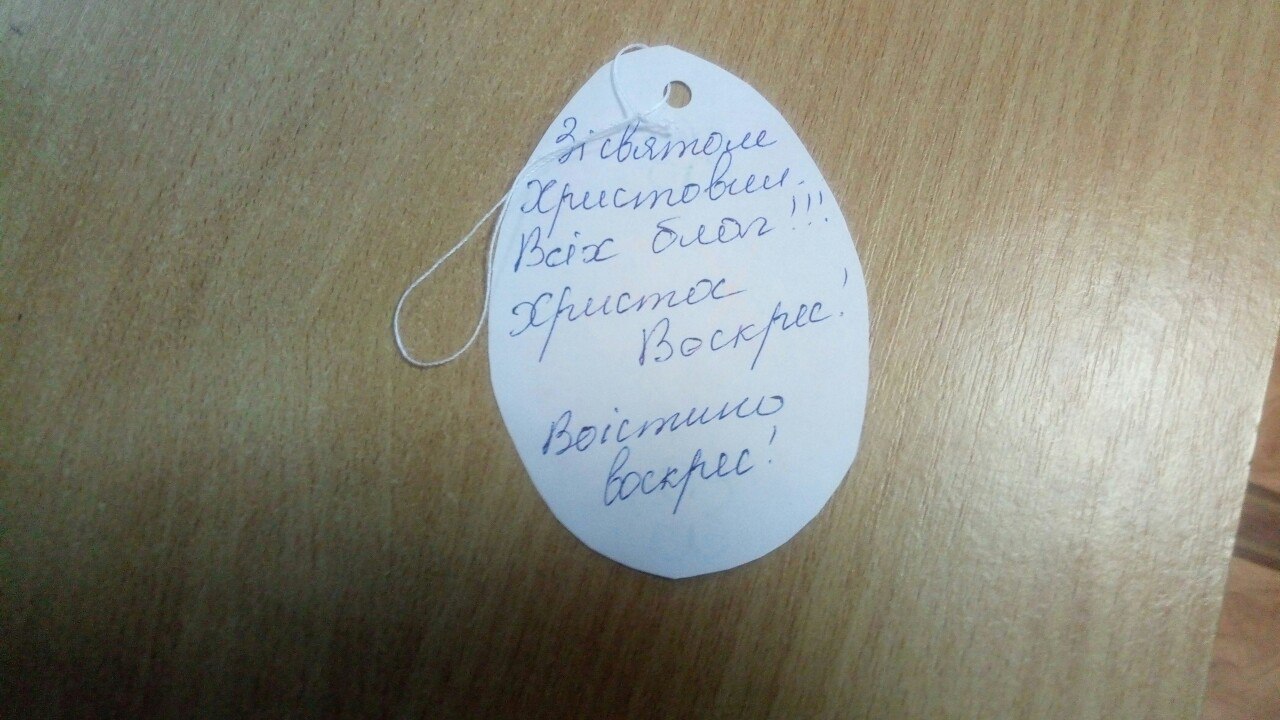 Зі святом
Христовим.
Всіх благ!!!
Христос
Воскрес!
Воістино
воскрес!